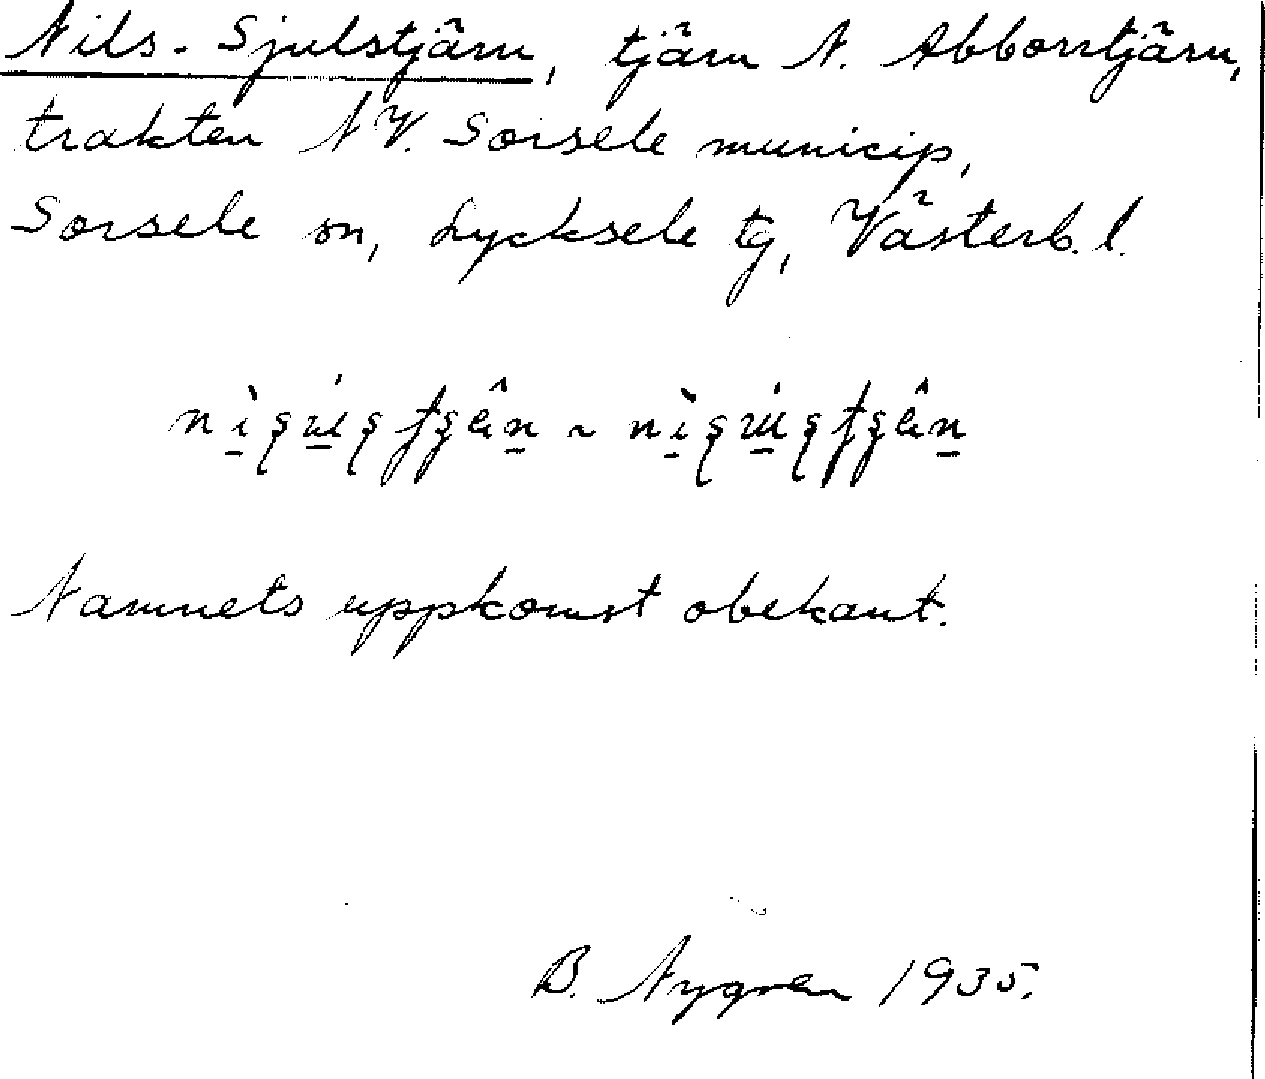 Nils-Sjulstjärn, tjärn N. Abborrtjärn,
trakten NV. Sorsele municip,
Sorsele sn, Lycksele tg, Västerb. l.
Namnets uppkomst obekant.
B. Nygren 1935.